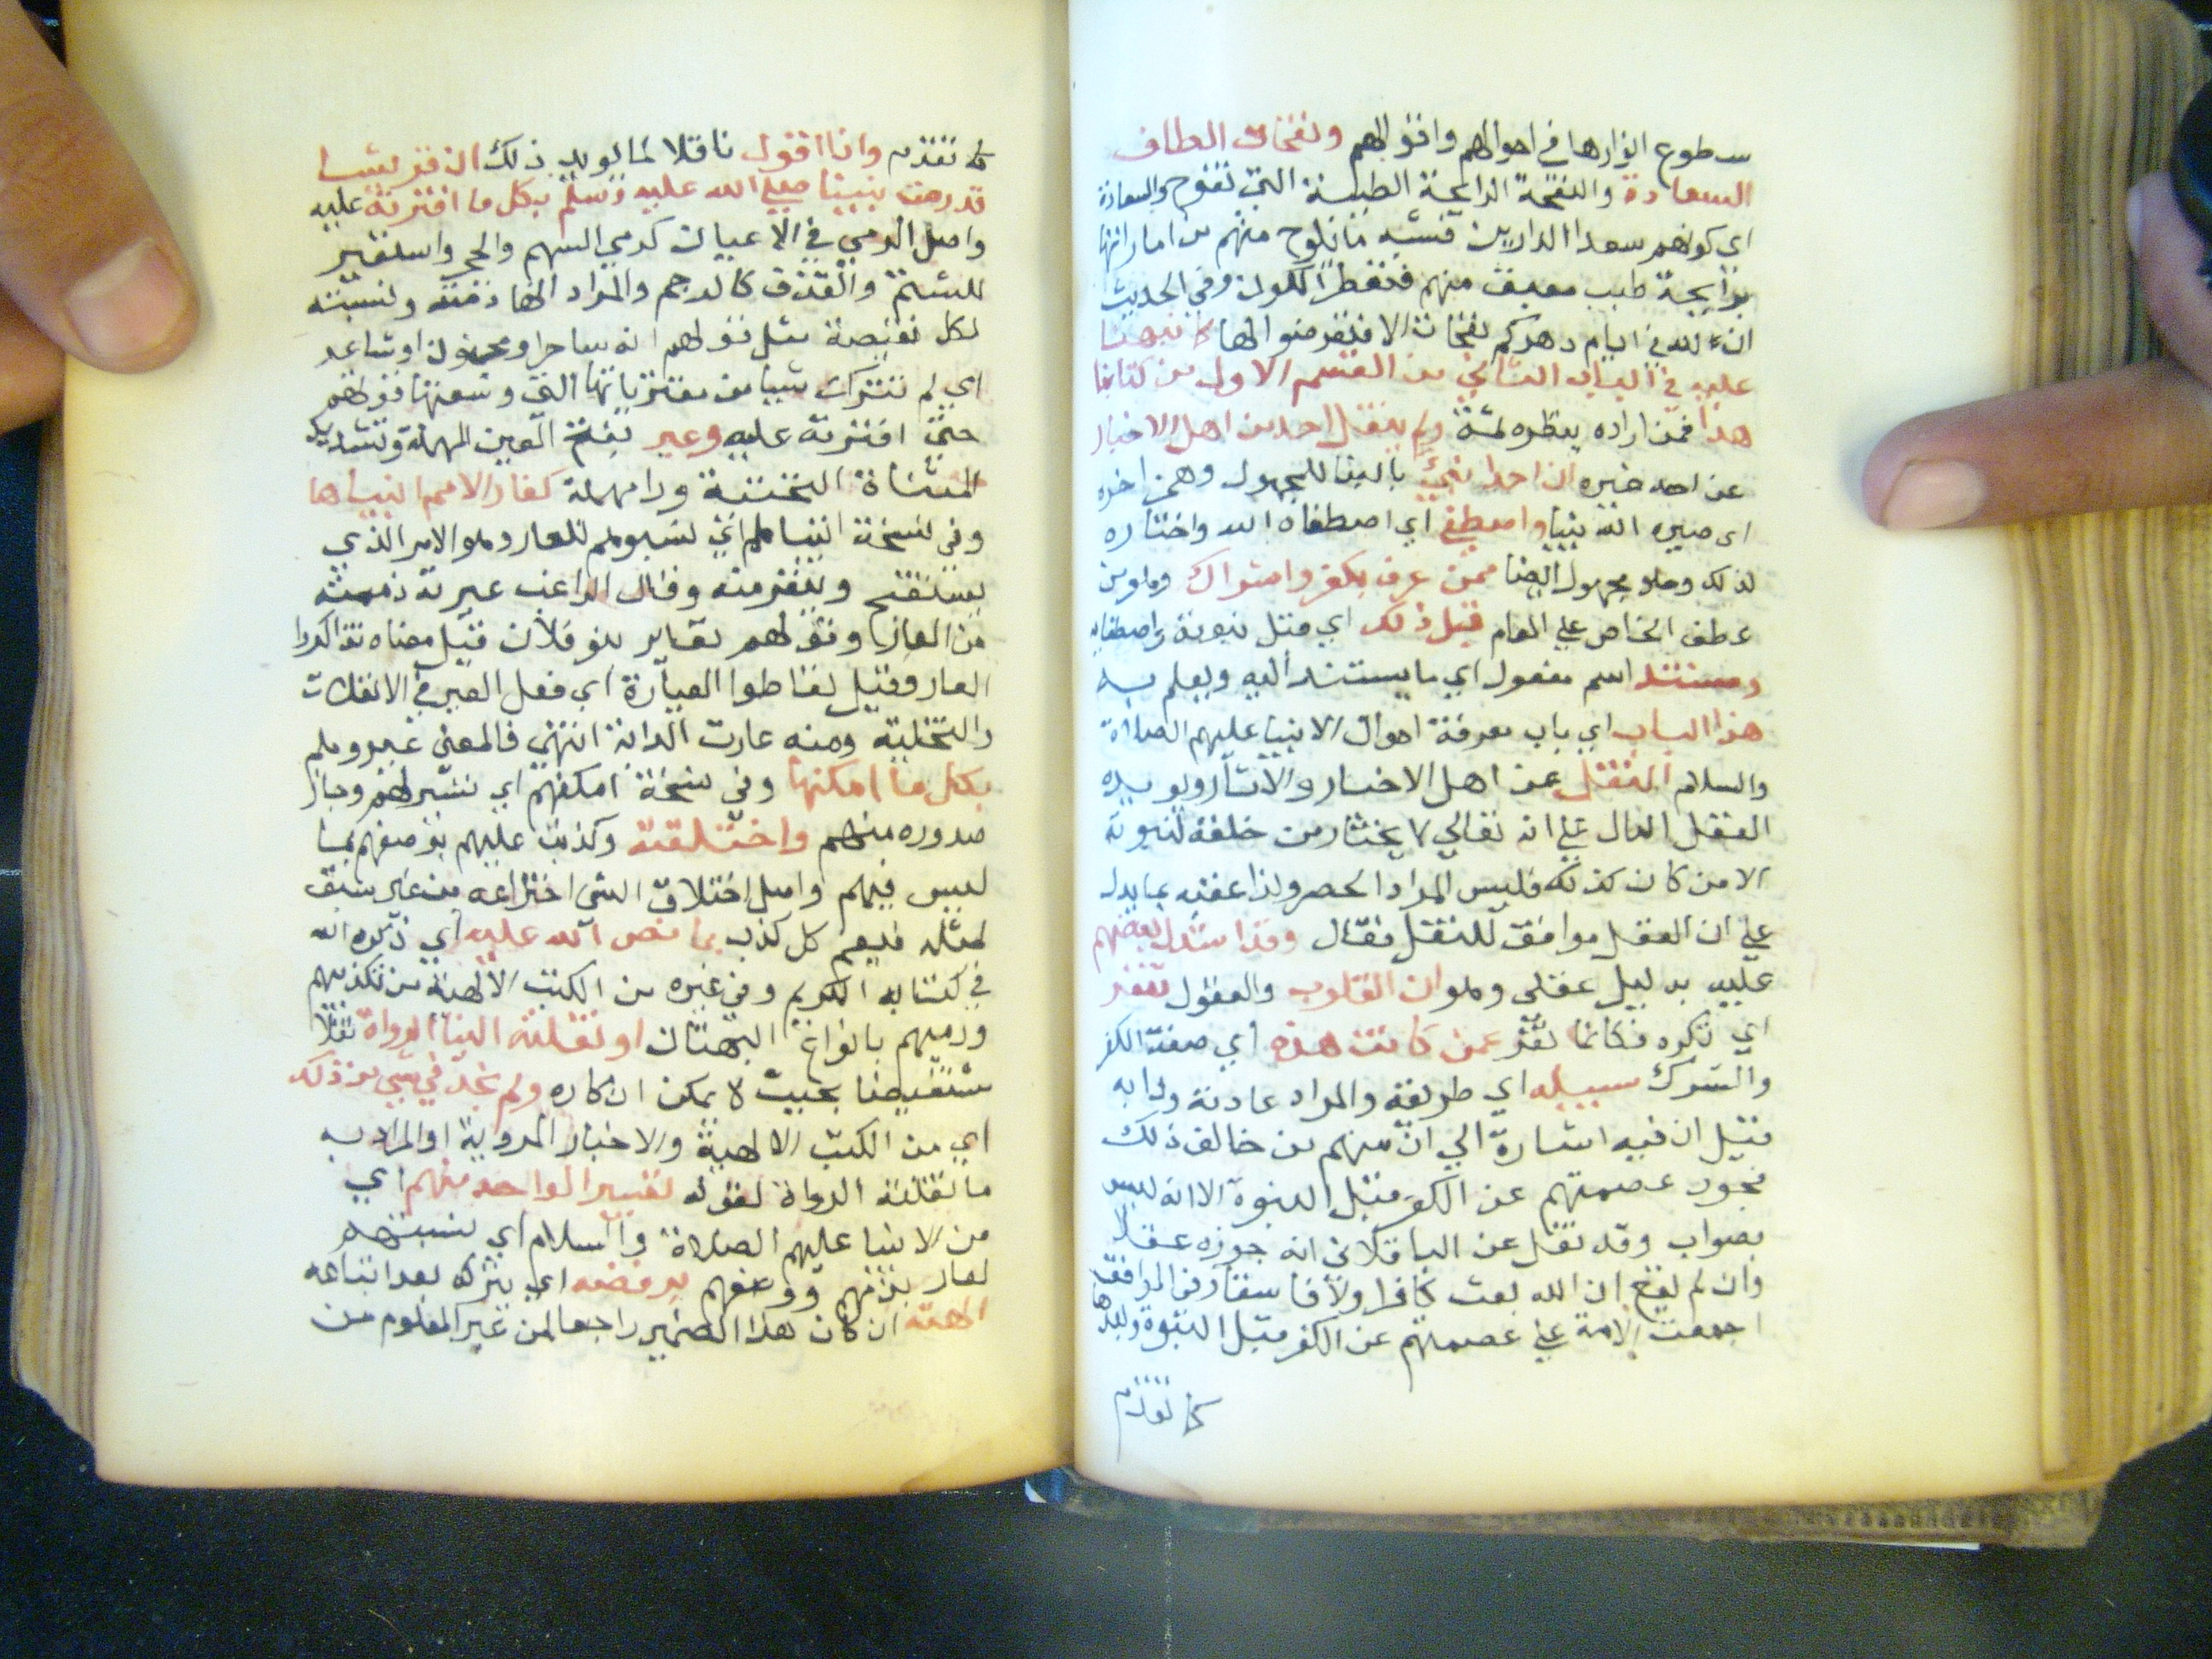 سطوع انوارها في احوالهم واقوالهم ونفحات الطاف
السعادة والنفحة الرايحة الطيبة التي تفوح والسعادة
اي كونهم سعدا الدارين فشبه ما يلوح منهم من اماراتها
برايحة طيب معبق منهم فتعطر الكون وفي الحديث
ان لله في ايام دهركم نفحات الا فتعرضوا لها كما نبهنا
عليه في الباب الثاني من القسم الاول من كتابنا
هذا فمن اراده ينظره ثمة ولم ينقل احد من اهل الاخبار
عن احد خبره ان احدا نبئ بالبنا للمجهول وهمز اخره
اي صيره الله نبيا واصطفي اي اصطفاه الله واختاره
لذلك وهو مجهول ايضا ممن عرف بكفر واشراك وهو من
عطف الخاص على العام قبل ذلك اي قبل نبوته واصطفايه
ومستند اسم مفعول اي ما يستند اليه ويعلم به
هذا الباب اي باب معرفة احوال الانبيا عليهم الصلاة
والسلام النقل عن اهل الاخبار والاثار ويويده
العقل الدال على انه تعالى لا يختار من خلقه لنبوته
الا من كان كذلك فليس المراد الحصر ولذا عقبه بما يدل
على ان العقل موافق للنقل فقال وقد استدل بعضهم
عليه بدليل عقلي وهو ان القلوب والعقول تنفر
اي تكره فكانما تفر عمن كانت هذه اي صفة الكفر
والشرك سبيله اي طريقه والمراد عادته ودابه
قيل ان فيه اشارة الي ان منهم من خالف ذلك
فجوز عصمتهم عن الكفر قبل النبوة الا انه ليس
بصواب وقد نقل عن الباقلاني انه جوزه عقلا
وان لم يقع ان الله بعث كافرا ولا فاسقا وفي المواقف
اجمعت الامة على عصمتهم عن الكفر قبل النبوة وبعدها
كما تقدم
كما تقدم وانا اقول ناقلا لما يويد ذلك ان قريشا
قد رمت نبينا صلى الله عليه وسلم بكل ما افترته عليه
واصل الرمي في الاعيان كرمي السهم والحجر واستعير
للشتم والقذف كالرجم والمراد انها ذمته ونسبته
لكل نقيصة مثل قولهم انه ساحر او مجنون او شاعر
اي لم تترك شيا من مفترياتها التي وسعتها قولهم
حتى افترته عليه وعير بفتح العين المهملة وتشديد
المثناة التحتية ورا مهملة كفار الامم انبياها
وفي نسخة انبياهم اي نسبوهم للعار وهو الامر الذي
يستقبح وينفر منه وقال الراغب عيرته ذممته
من العار وقولهم تعاير بنو فلان قيل معناه تذاكروا
العار وقيل تعاطوا العيارة اي فعل العير في الانفلات
والتخلية ومنه عارت الدابة انتهى فالمعنى عيروهم
بكل ما امكنها وفي نسخة امكنهم اي تيسر لهم وجاز
صدوره منهم واختلقته وكذبت عليهم بوصفهم بما
ليس فيهم واصل اختلاق الشي اختراعه من غير سبق
لمثله فيعم كل كذب مما نص الله عليه اي ذكره الله
في كتابه الكريم وفي غيره من الكتب الالهية من تكذيبهم
ورميهم بانواع البهتان او نقلته الينا الرواة نقلا
مستفيضا بحيث لا يمكن انكاره ولم نجد في شي من ذلك
اي من الكتب الالهية والاخبار المروية او المراد به
ما نقلته الرواة لقوله تعييرا لواحد منهم اي
من الانبيا عليهم الصلاة والسلام اي نسبتهم
لعار بذمهم ووصفهم برفضه اي بتركه بعد اتباعه
الهته ان كان هذا الضمير راجعا لمن عير المعلوم من